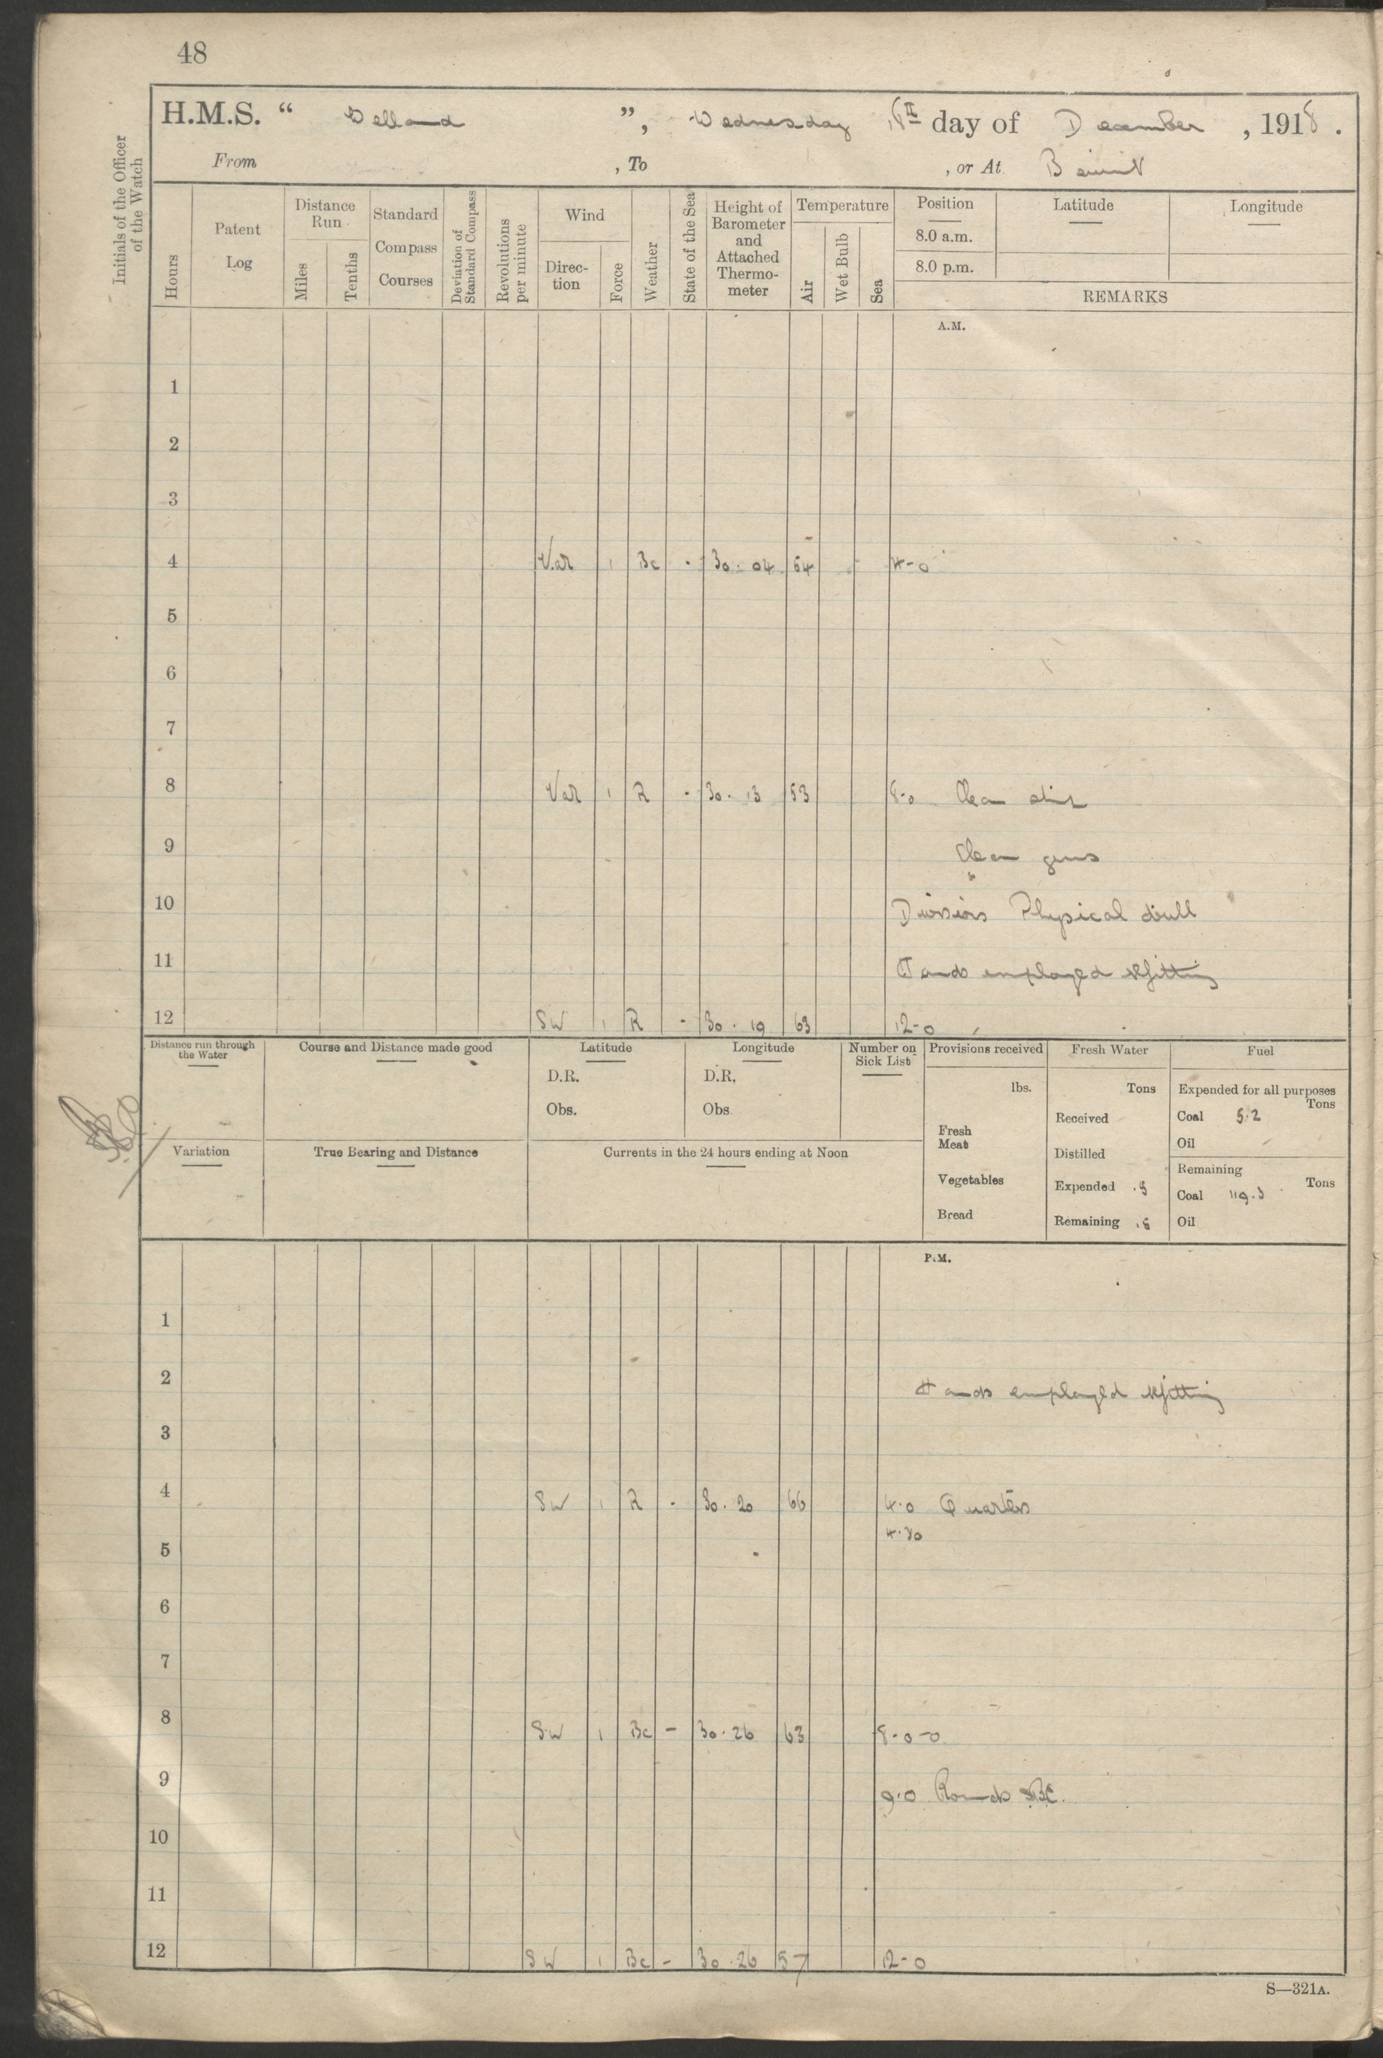 48
H.M.S. “ Welland ”, Wednesday day of December , 1918 .
From , To , or At Beirut
Initials of the Officer of the Watch
Hours
Patent Log
Distance Run
Miles
Tenths
Standard Compass Courses
Deviation of Standard Compass
Revolutions per minute
Wind
Direc-tion
Force
Weather
State of the Sea
Height of Barometer and Attached Thermo-meter
Temperature
Air
Wet Bulb
Sea
Position
8.0 a.m.
8.0 p.m.
Latitude
Longitude
REMARKS
A.M.
1
2
3
4 Var 1 Bc - 30.04 54 4-0
5
6
7
8 Var 1 R - 30.13 53 8-0 Clean ship
9 Clean guns
10 Divisions Physical drill
11 Hands employed refitting
12 SW 1 R - 30.19 63 12-0
Distance run through the Water
Course and Distance made good
Latitude
D.R.
Obs.
Longitude
D.R.
Obs
Number on Sick List
Provisions received
lbs.
Fresh Meat
Vegetables
Bread
Fresh Water
Tons
Received
Distilled
Expended .5
Remaining
Fuel
Expended for all purposes
Tons
Coal 5.2
Oil
Remaining
Tons
Coal 119.3
Oil
Variation
True Bearing and Distance
Currents in the 24 hours ending at Noon
P.M.
1
2 Hands employed refitting
3
4 SW 1 R - 30.20 66 4.0 Quarters
4.30
5
6
7
8 SW 1 Bc - 30.26 63 8-0-0
9 9.0 Rounds
10
11
12 SW 1 Bc - 30.26 57 12-0
S—321A.